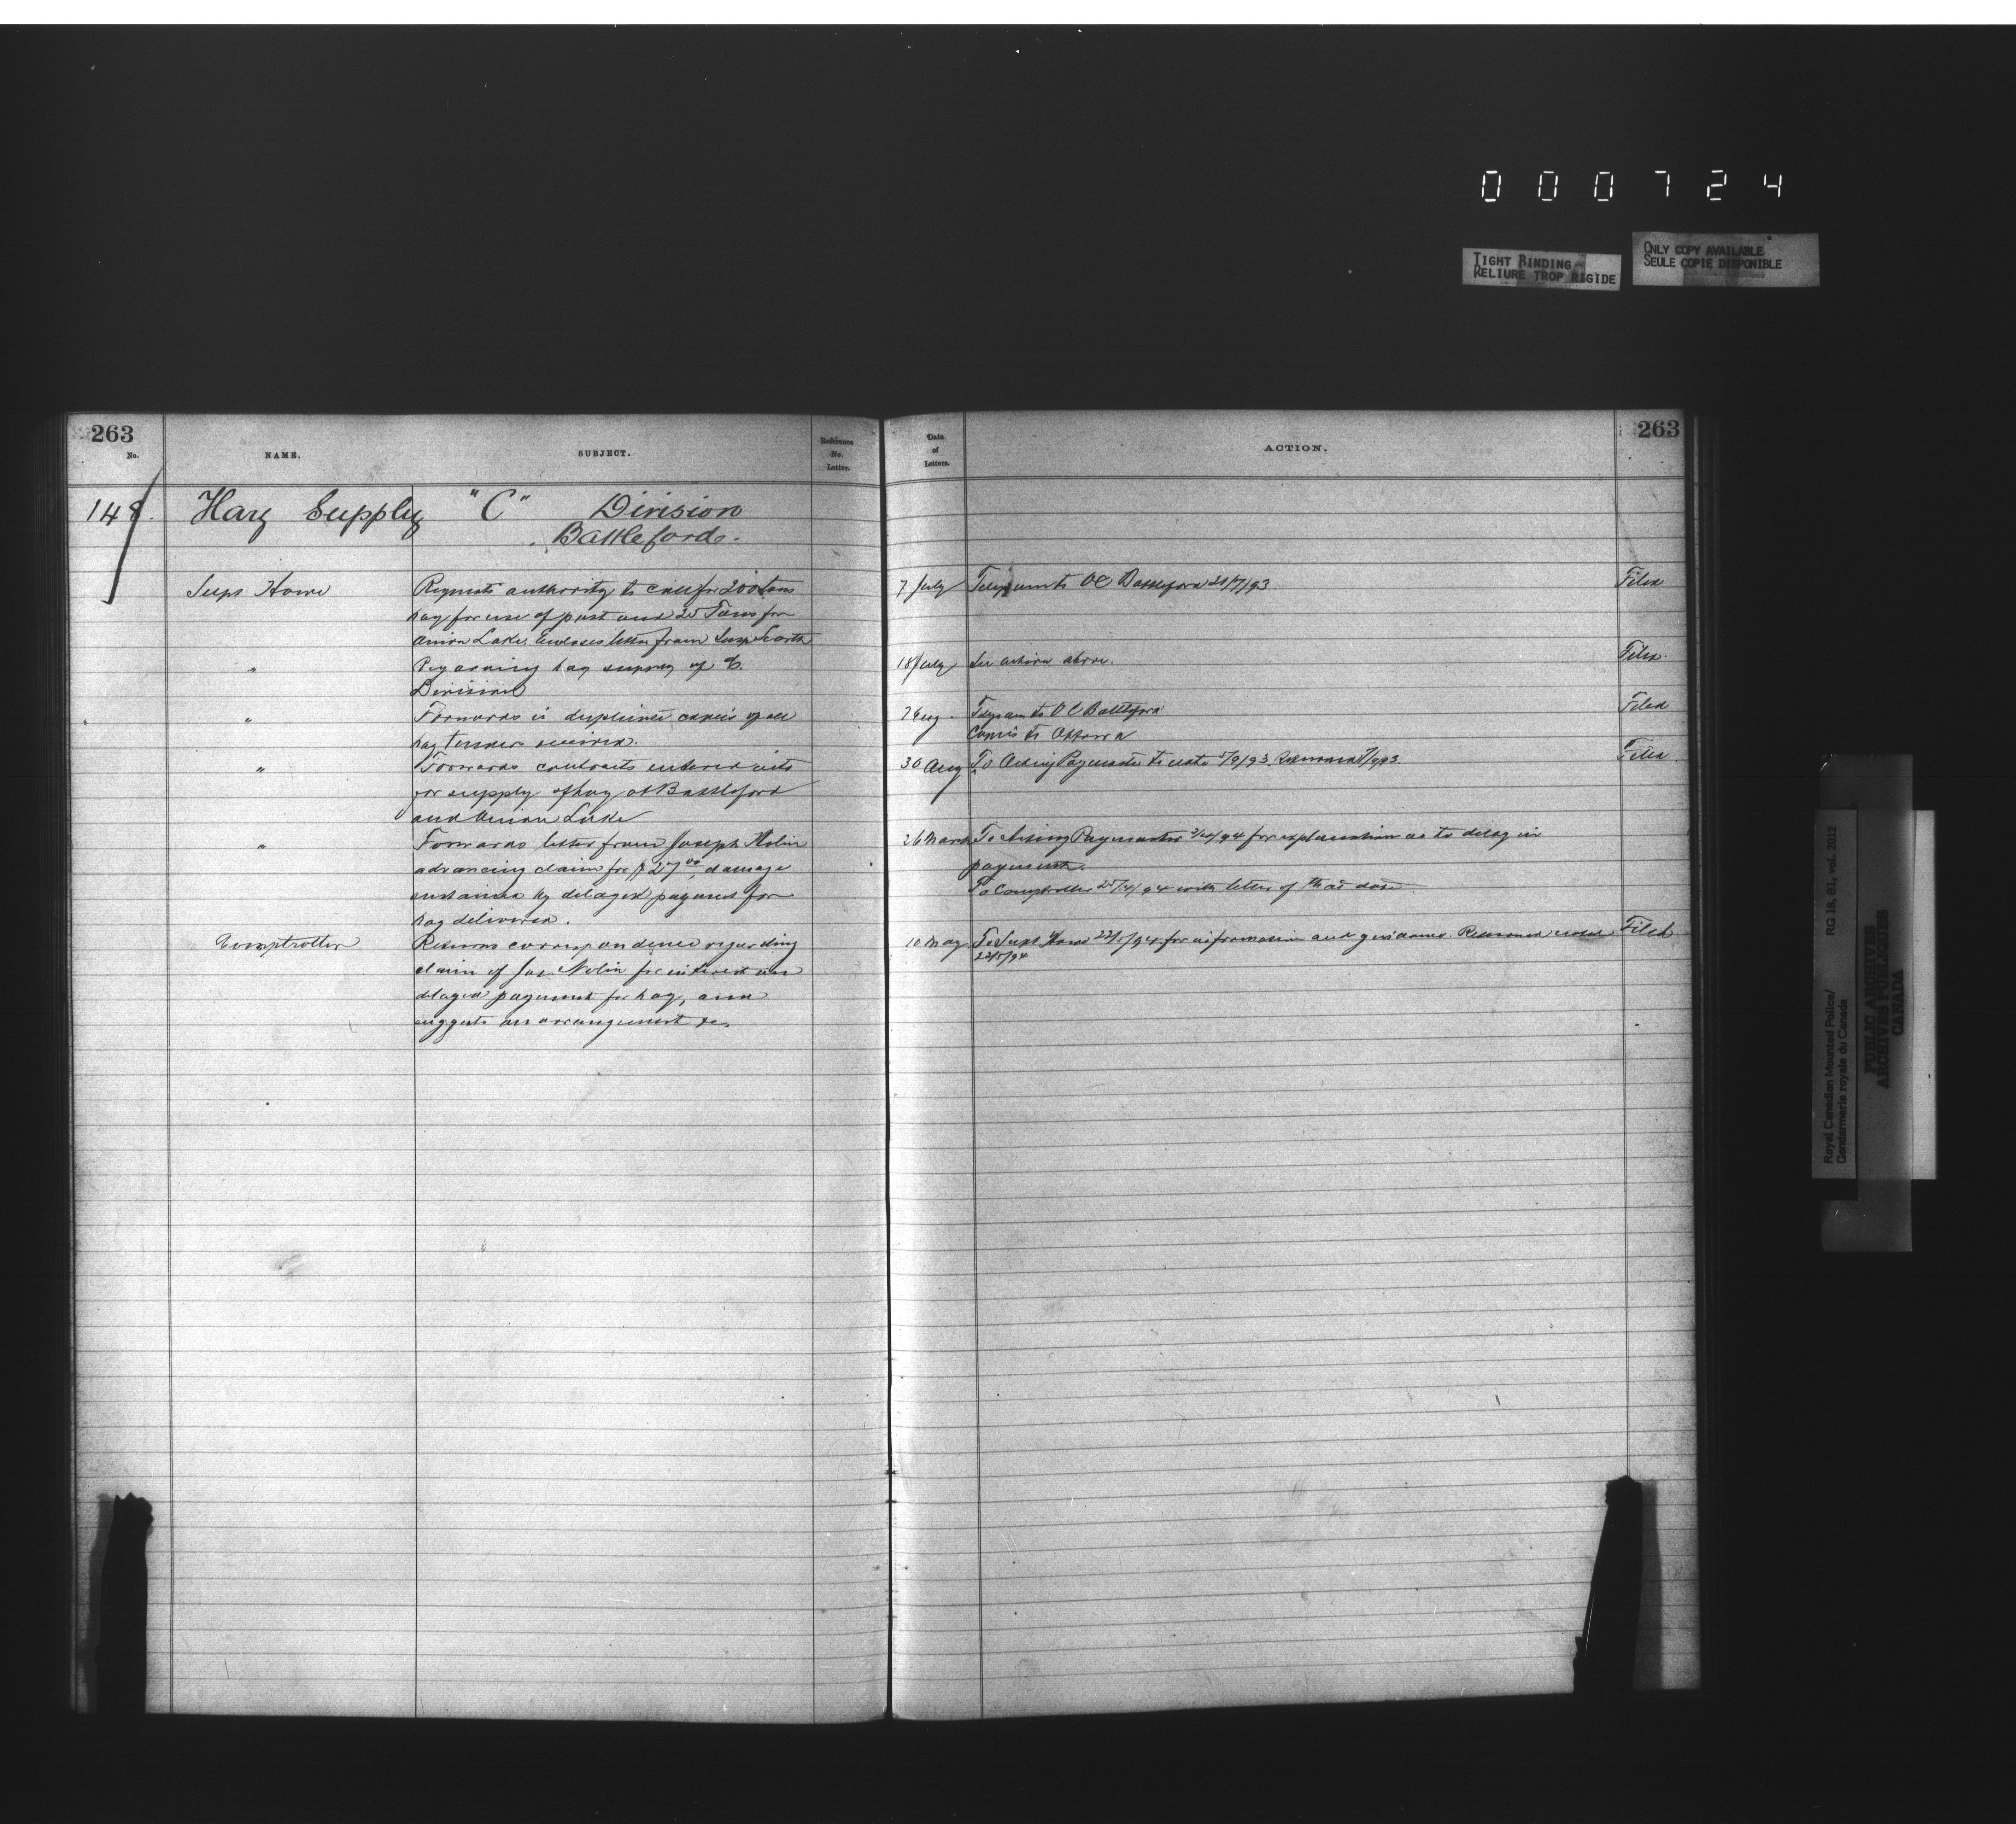 000724
TIGHT BINDING
RELIURE TROP RIGIDE
ONLY COPY AVAILABLE
SEULE COPIE DISPONIBLE
263
No.
NAME.
SUBJECT.
Reference No. Letter.
Date of Letters.
ACTION.
263
148. Hay Supply "C" Division
Battleford.
Supt Howe
Requests authority to call for 200 tons
hay for use of post and 25 Tons for
Onion Lake. Encloses letter from Insp Scarth
7 July
Telegram to OC Battleford
Filed
"
Regarding hay supply of C.
Division
18 July
See action above.
Filed.
"
Forwards in duplicate copies of all
hay tenders received.
Telegram to OC Battleford
Copies to Ottawa
Filed
"
Forwards contracts entered into
for supply of hay at Battleford
and Onion Lake
30 Aug
To Acting Paymaster to note /9/93. Returned /9/93.
Filed
"
Forwards letter from Joseph Nolin
advancing claim for $27.00, damage
sustained by delayed payment for
hay delivered.
26 March
To Acting Paymaster 2/4/94 for explanation as to delay in
payment.
To Comptroller 25/4/94 with letter of that date.
Comptroller
Returns correspondence regarding
claim of Jos. Nolin for interest on
delayed payment for hay, and
suggests an arrangement &c.
10 May
To Supt Howe 22/5/94 for information and guidance. Returned noted
22/5/94
Filed
Royal Canadian Mounted Police/
Gendarmerie royale du Canada
RG 18, B1, vol. 2012
PUBLIC ARCHIVES
ARCHIVES PUBLIQUES
CANADA